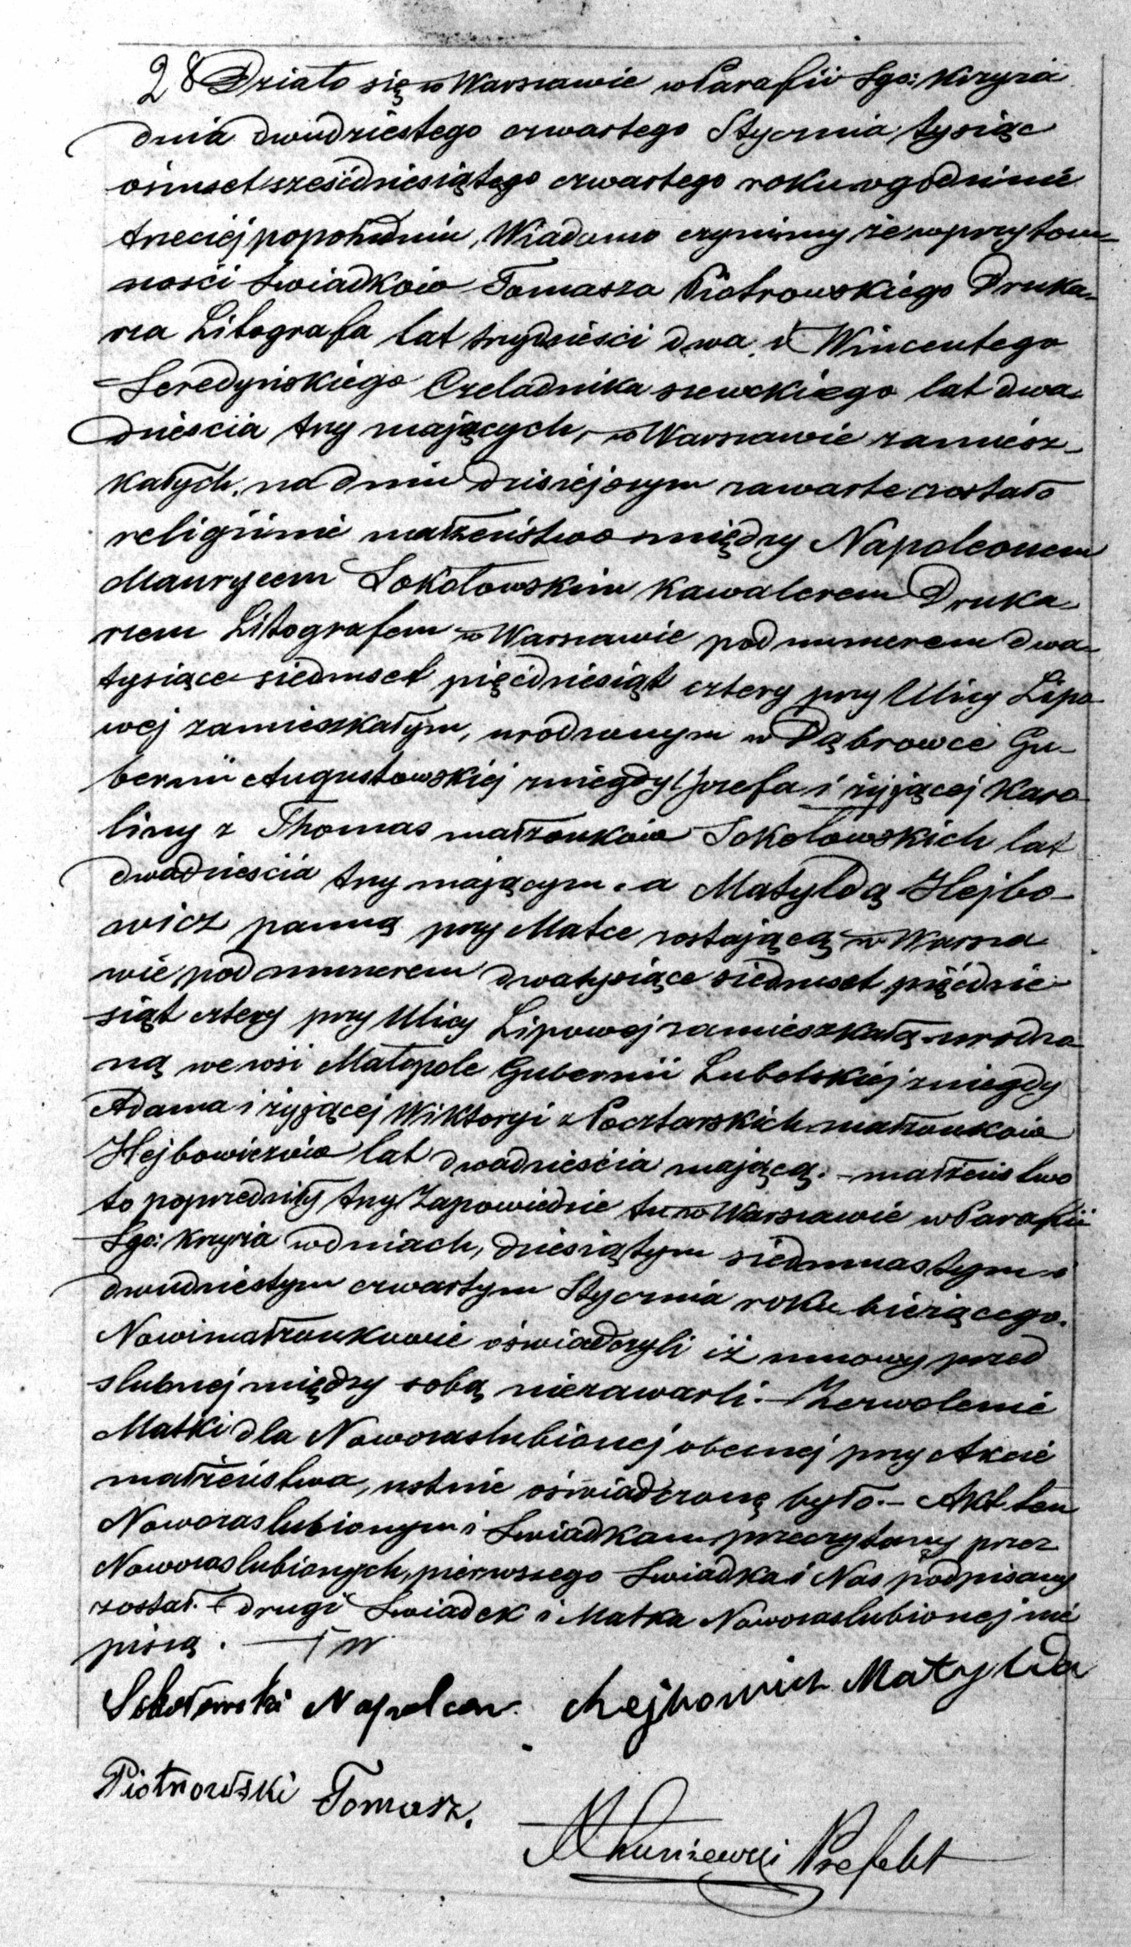 28 Działo się w Warszawie w Parafii Sgo: Krzyża
dnia dwudziestego czwartego Stycznia tysiąc
ośmset sześćdziesiątego czwartego roku o godzinie
trzeciej popołudniu, Wiadomo czynimy że w przytom-
ności świadków Tomasza Piotrowskiego Druka-
rza Litografa lat trzydzieści dwa, i Wincentego
Seredyńskiego Czeladnika szewckiego lat dwa-
dzieścia trzy mających, w Warszawie zamiesz-
kałych, na dniu dzisiejszym zawarte zostało
religijne małżeństwo między Napoleonem
Maurycem Sokołowskim kawalerem Druka-
rzem Litografem w Warszawie pod numerem dwa-
tysiące siedmset pięćdziesiąt cztery przy Ulicy Lipo-
wej zamieszkałym, urodzonym w Dąbrowce Gu-
bernii Augustowskiej z niegdy Jozefa i żyjącej Karo-
liny z Thomas małżonków Sokołowskich lat
dwadzieścia trzy mającym. a Matyldą Hejbo-
wicz panną przy Matce zostającą w Warsza
wie pod numerem dwatysiące siedmset pięćdzie-
siąt cztery przy Ulicy Lipowej zamieszkałą urodzo
ną we wsi Małopole Gubernii Lubelskiej z niegdy
Adama i żyjącej Wiktoryi z Pocztarskich małżonków
Hejbowiczów lat dwadzieścia mającą. małżeństwo
to poprzedziły trzy Zapowiedzie tu w Warszawie w Parafii
Sgo: Krzyża w dniach, dziesiątym siedmnastym i
dwudziestym czwartym Stycznia roku bieżącego.
Nowimałżonkowie oświadczyli iż umowy przed
ślubnej między sobą niezawarli. Zezwolenie
Matki dla Nowozaślubionej obecnej przy Akcie
małżeństwa, ustnie oświadczone było. Akt ten
Nowozaślubionym i Świadkom przeczytany przez
Nowozaślubionych, pierwszego Świadka i Nas podpisany
został. drugi Świadek i Matka Nowozaślubionej nie
piszą.
Sokołowski Napoleon. Hejbowicz Matylda
Piotrowski Tomasz.
Prefekt